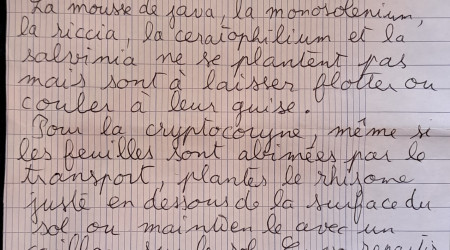 La mousse de java, la monosolenium,
la riccia, la ceratophilium et la
salvinia ne se plantent pas
mais sont à laisser flotter ou
couler à leur guise.
Pour la cryptocoryne, même si
les feuilles sont abimées par le
transport, plantes le rhisome
juste en dessous de la surface du
sol ou maintien le avec un